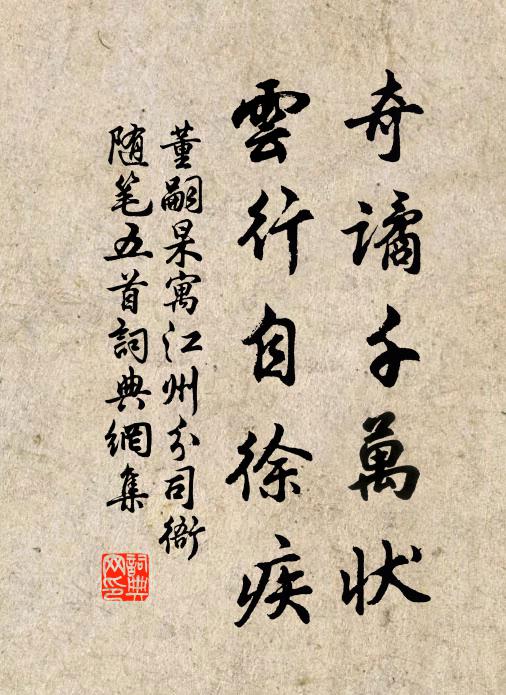 奇譎千萬狀
雲行自徐疾
董嗣杲寓江州分司衙
随笔五首詞典網集
詞典网印